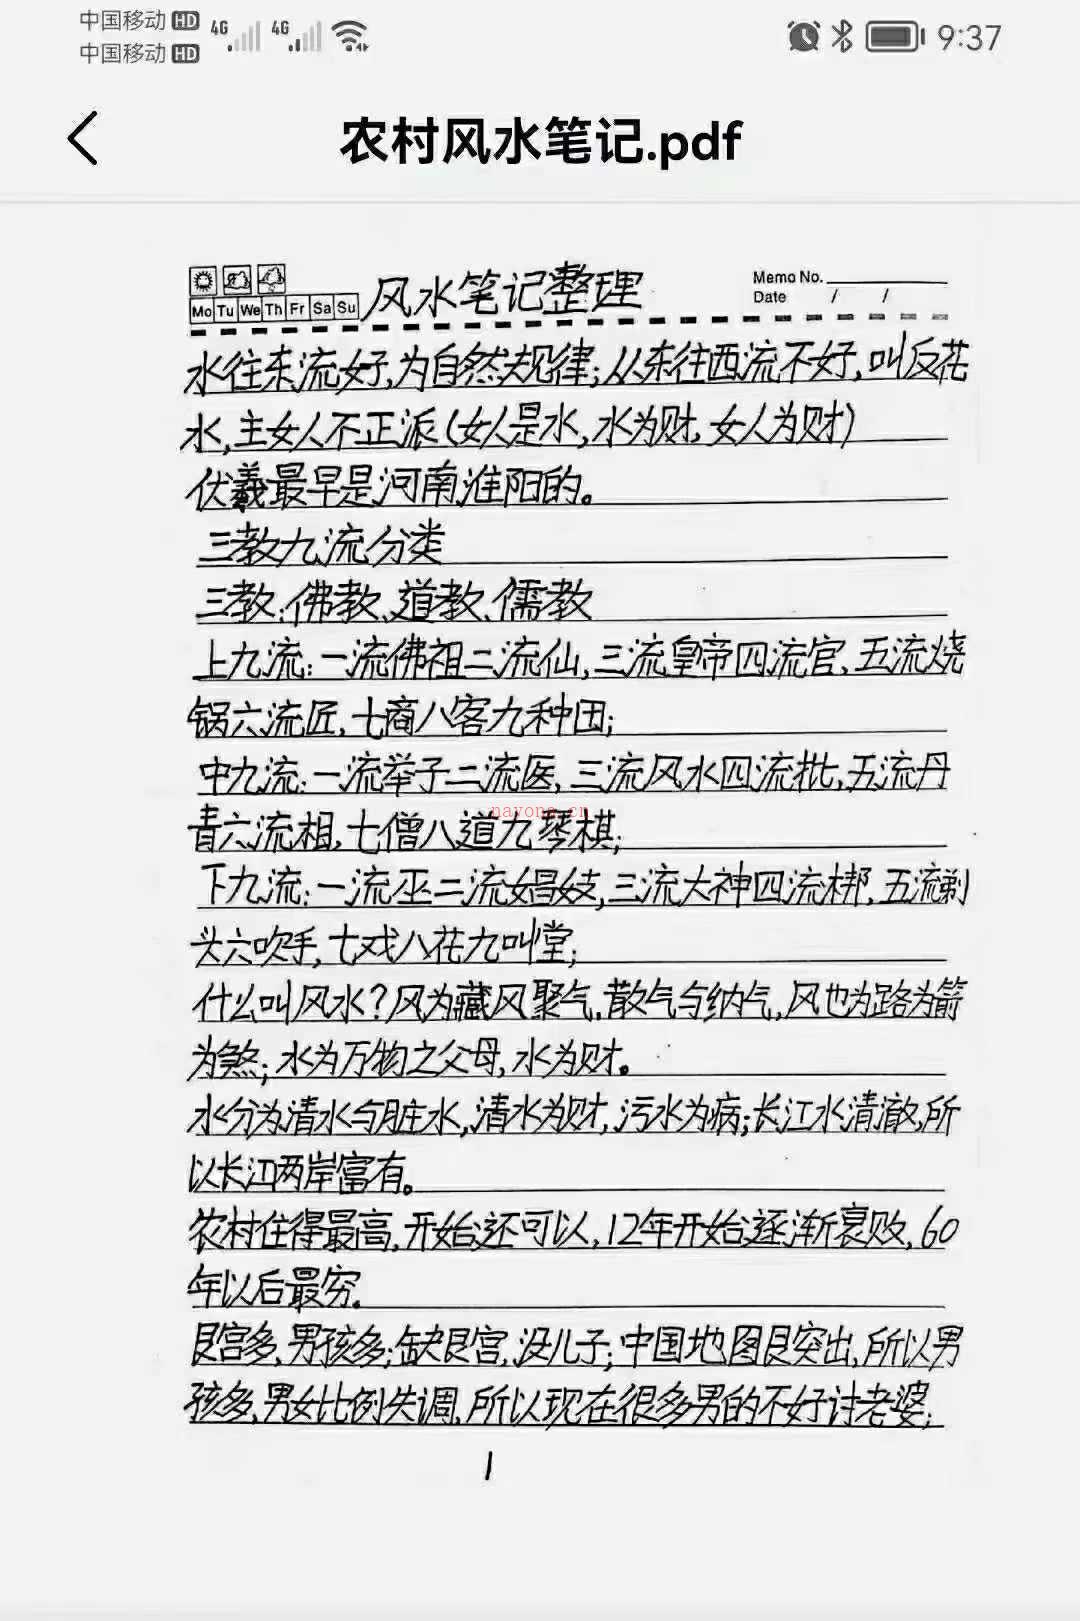 中国移动 HD 4G 4G 9:37
中国移动 HD
农村风水笔记.pdf
Mo Tu We Th Fr Sa Su 风水笔记整理 Memo No.
Date / /
水往东流好,为自然规律;从东往西流不好,叫反花
水,主女人不正派(女人是水,水为财,女人为财)
伏羲最早是河南淮阳的。
三教九流分类
三教:佛教、道教、儒教
上九流:一流佛祖二流仙,三流皇帝四流官,五流烧
锅六流匠,七商八客九种田;
中九流:一流举子二流医,三流风水四流批,五流丹
青六流相,七僧八道九琴棋;
nayona.cn
下九流:一流巫二流娼妓,三流大神四流梆,五流剃
头六吹手,七戏八花九叫堂;
什么叫风水?风为藏风聚气,散气与纳气,风也为路为箭
为煞;水为万物之父母,水为财。
水分为清水与脏水,清水为财,污水为病;长江水清澈,所
以长江两岸富有。
农村住得最高,开始还可以,12年开始逐渐衰败,60
年以后最穷。
艮宫多,男孩多;缺艮宫,没儿子;中国地图艮突出,所以男
孩多,男女比例失调,所以现在很多男的不好讨老婆;
1